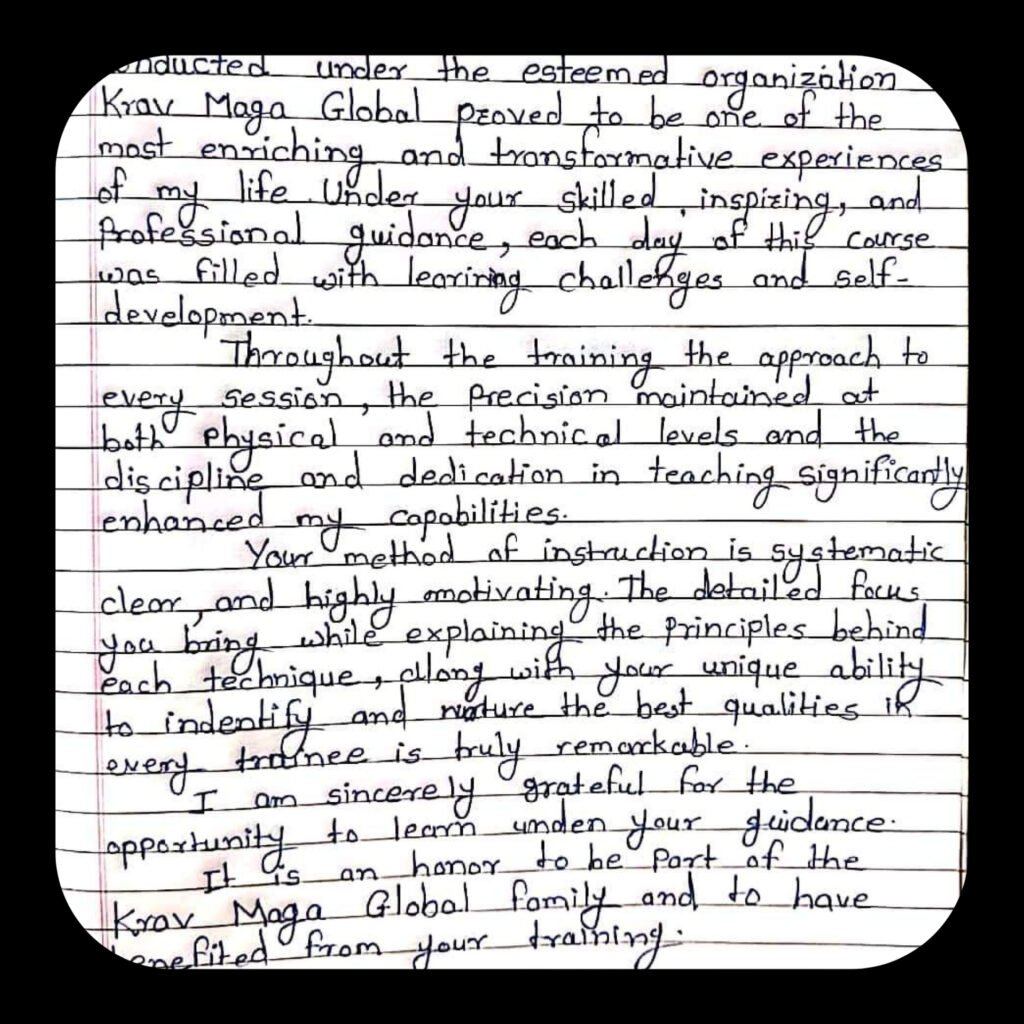 onducted under the esteemed organization
Krav Maga Global proved to be one of the
most enriching and transformative experiences
of my life. Under your skilled, inspiring, and
Professional guidance, each day of this course
was filled with learining challenges and self-
development.
Throughout the training the approach to
every session, the Precision maintained at
both Physical and technical levels and the
discipline and dedication in teaching significantly
enhanced my capabilities.
Your method of instruction is systematic
clear, and highly motivating. The detailed focus
you bring while explaining the Principles behind
each technique, allong with your unique ability
to indentify and nuture the best qualities in
every trainee is truly remarkable.
I am sincerely grateful for the
opportunity to learn unden your guidance.
It is an honor to be Part of the
Krav Maga Global family and to have
benefited from your training.